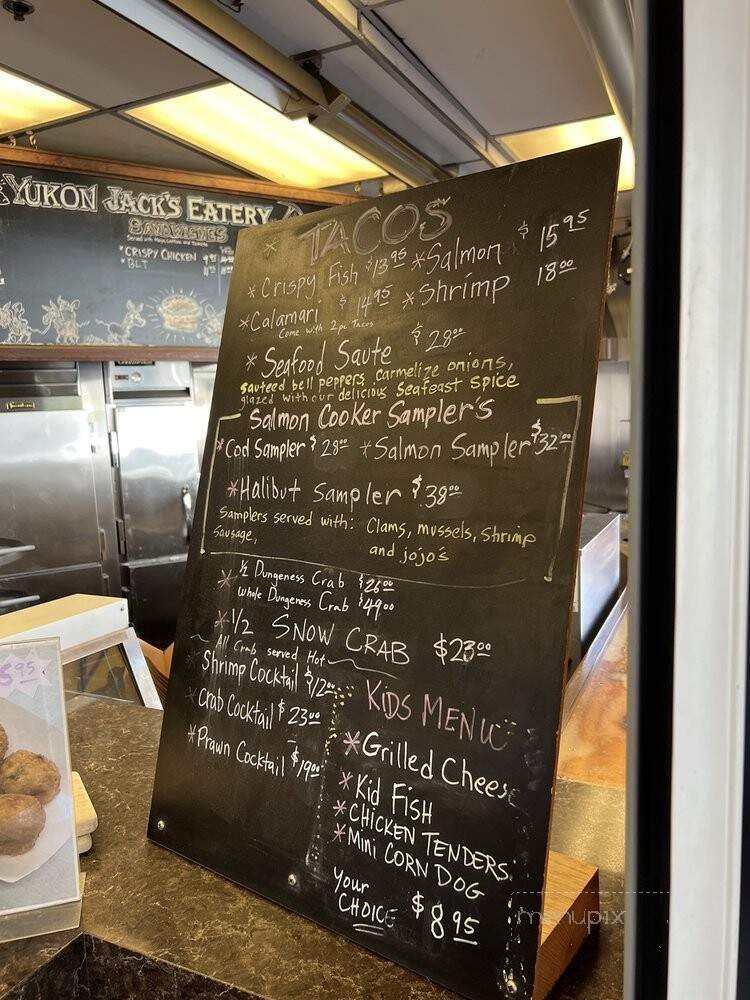 YUKON JACK'S EATERY
SANDWICHES
Served with Mayo, Lettuce and Tomato
* CRISPY CHICKEN
* BLT
TACOS
* Crispy Fish $13.95 * Salmon $15.95
* Calamari $14.95 * Shrimp 18.00
Come with 2 pc Tacos
* Seafood Saute $28.00
sauteed bell peppers, carmelize onions,
glazed with our delicious Seafeast spice
Salmon Cooker Sampler's
* Cod Sampler $28.00 * Salmon Sampler $32.00
* Halibut Sampler $38.00
Samplers served with: Clams, mussels, shrimp
Sausage, and jojo's
* 1/2 Dungeness Crab $26.00
whole Dungeness Crab $49.00
* 1/2 SNOW CRAB $23.00
~ All Crab served Hot ~
* Shrimp Cocktail $12.00
* Crab Cocktail $23.00
* Prawn Cocktail $19.00
KIDS MENU
* Grilled Cheese
* Kid FISH
* CHICKEN TENDERS
* Mini CORN DOG
Your
CHOICE $8.95
5.95
menupix